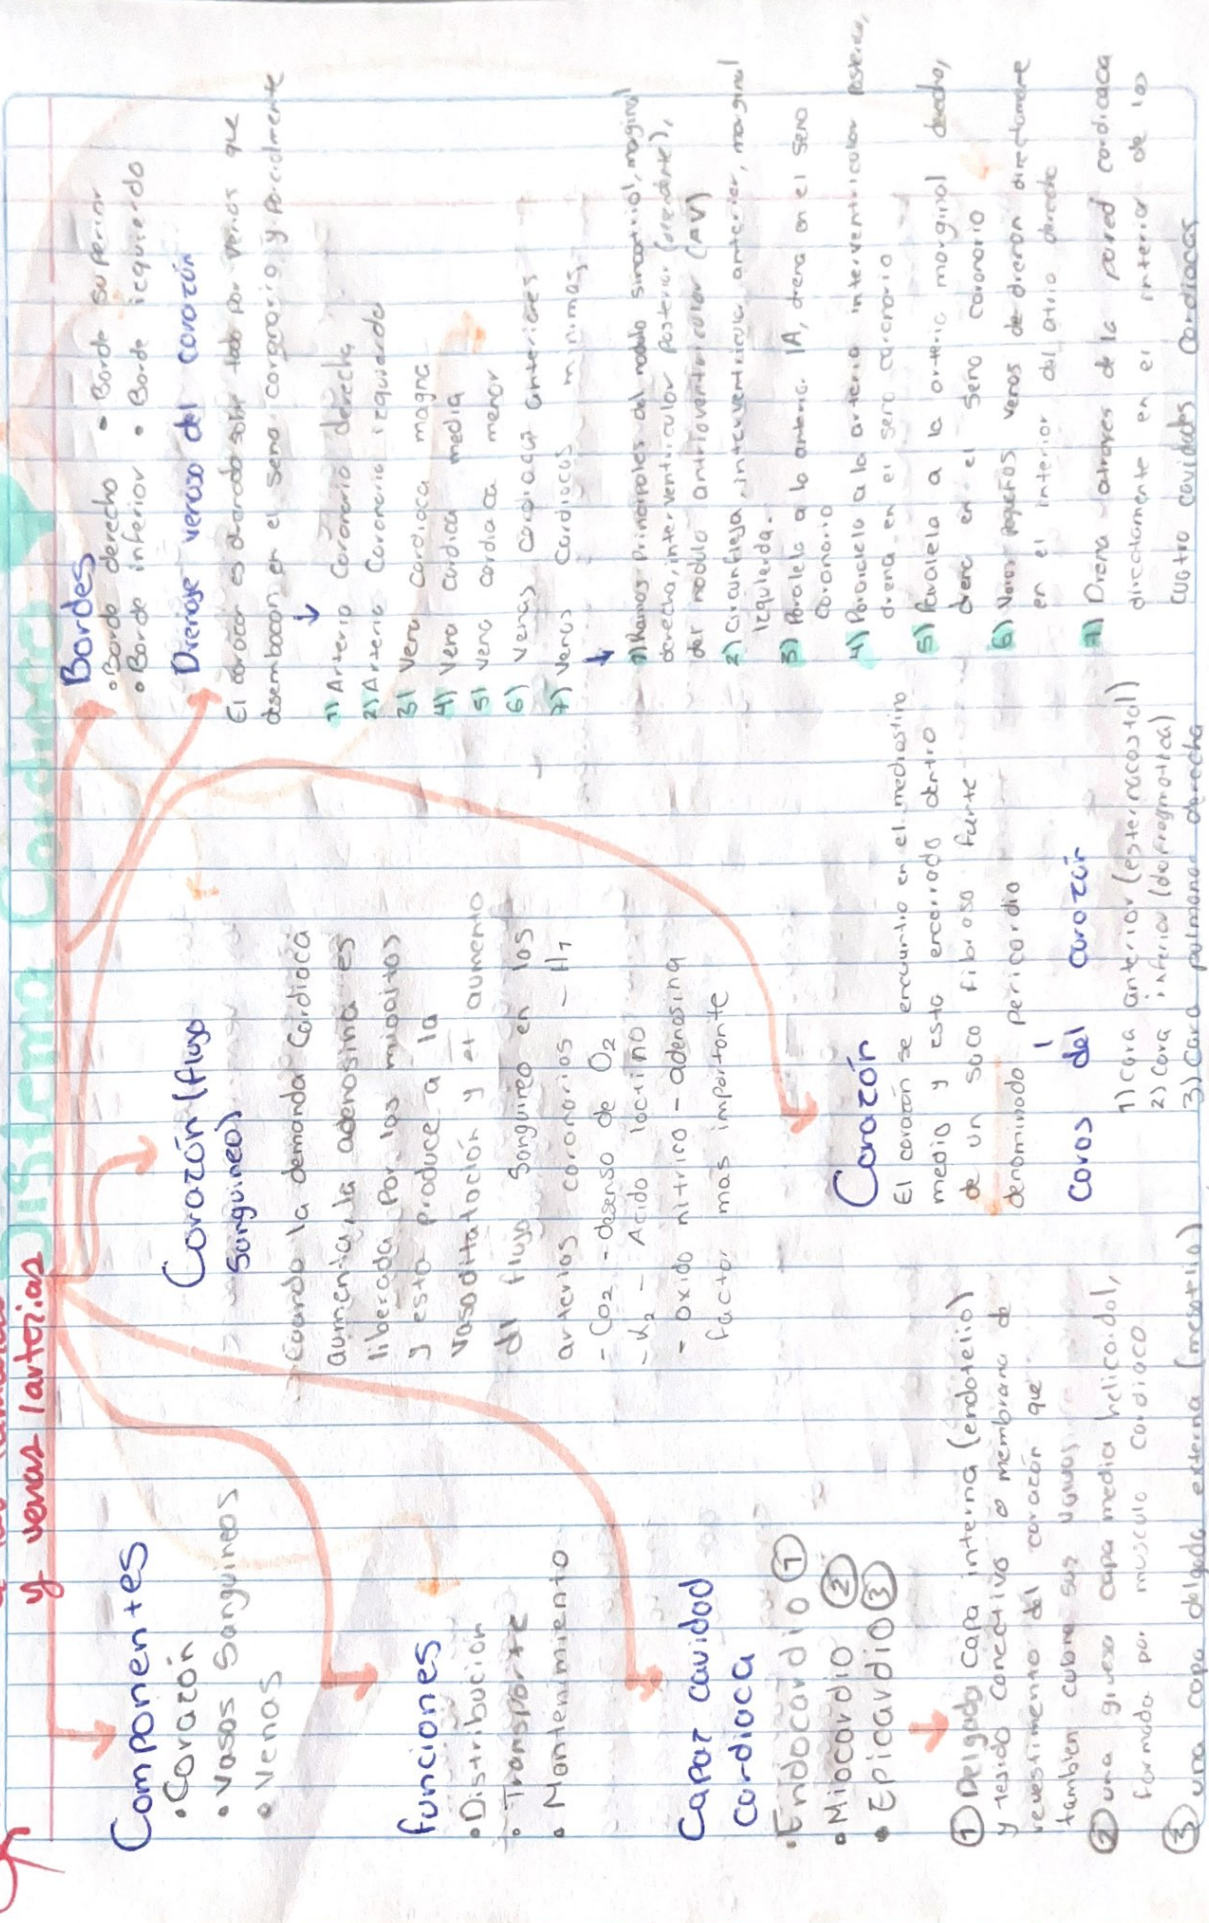 Sistema Cardiaco
y venas (arterias
Componentes
• Corazón
• Vasos Sanguineos
• Venas
funciones
• Distribución
• Transporte
• Mantenimiento
Capaz cavidad
Cardiaca
• Endocardio ①
• Miocardio ②
• Epicardio ③
① Delgada capa interna (endotelio)
y tejido conectivo o membrana de
revestimiento del corazón que
tambien cubre sus
② una gruesa capa media helicoidal,
formada por musculo cardiaco
③ una capa delgada externa (mesotelio)
Corazón (flujo
Sanguineo)
Cuando la demanda Cardiaca
aumenta, la adenosina es
liberada por los miocitos
y esto produce a la
Vasodilatación y el aumento
dl flujo Sanguineo en los
arterias coronarias - H1
- Co2 - desenso de O2
- Acido lactino
- oxido nitrico - adenosina
factor mas importante
Corazón
El corazón se encuentra en el mediastino
medio y esta encerrado dentro
de un saco fibroso furte
denominado pericardio
Caras del corazón
1) Cara anterior (esternocostal)
2) Cara inferior (diafragmatica)
3) Cara pulmonar derecha
Bordes
• Borde derecho • Borde superior
• Borde inferior • Borde izquierdo
Drenaje venoso del corazón
El corazon es drenado sobre todo por venas que
desembocan en el seno coronario y parcialmente
1) Arteria Coronaria derecha
2) Arteria Coronaria izquierda
3) Vena cardiaca magna
4) Vena cardica media
5) vena cardiaca menor
6) Venas anteriores
7) Venas Cardiacas minimas
1) Ramos principales del nodulo sinoatrial, marginal
derecha, interventricular posterior
del nodulo (AV)
2) Circunfleja, anterior, marginal
izquierda.
3) Paralela a la arteria IA, drena en el seno
Coronario
4) Paralela a la arteria interventricular posterior,
drena en el seno coronario
5) Paralela a la arteria marginal derecha,
drena en el Seno coronario
6) Varias pequeñas venas de drenan directamente
en el interior del atrio derecho
7) Drena atraves de la pared cardicaca
directamente en el interior de los
cuatro cavidades cardiacas